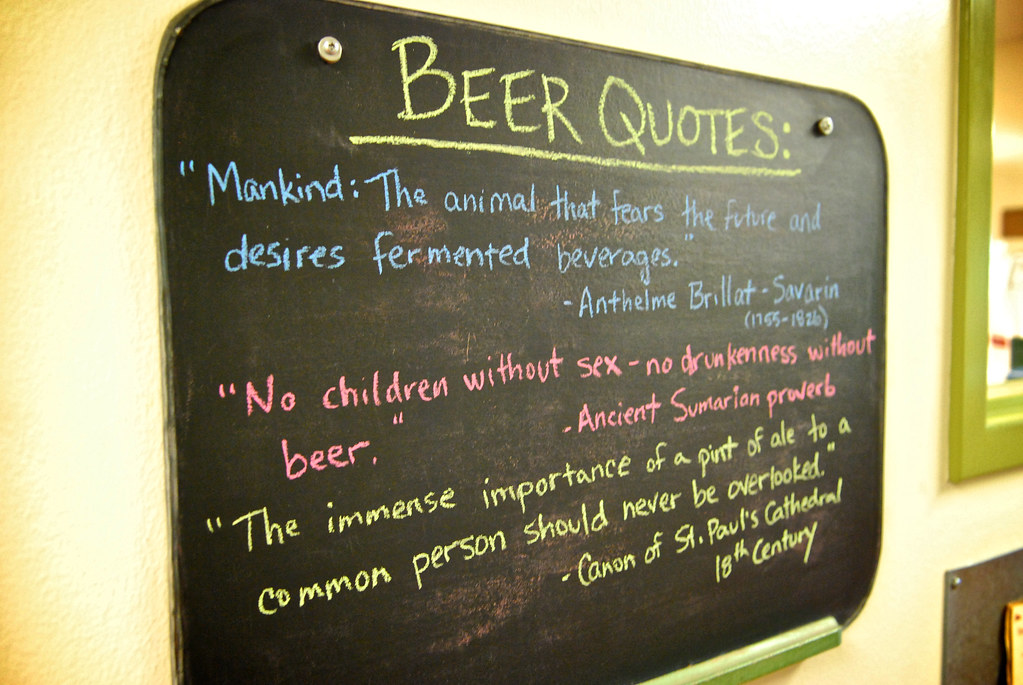 BEER QUOTES:
"Mankind: The animal that fears the future and
desires fermented beverages."
- Anthelme Brillat-Savarin
(1755-1826)
"No children without sex - no drunkenness without
beer."
- Ancient Sumarian proverb
"The immense importance of a pint of ale to a
common person should never be overlooked."
- Canon of St. Paul's Cathedral
18th Century